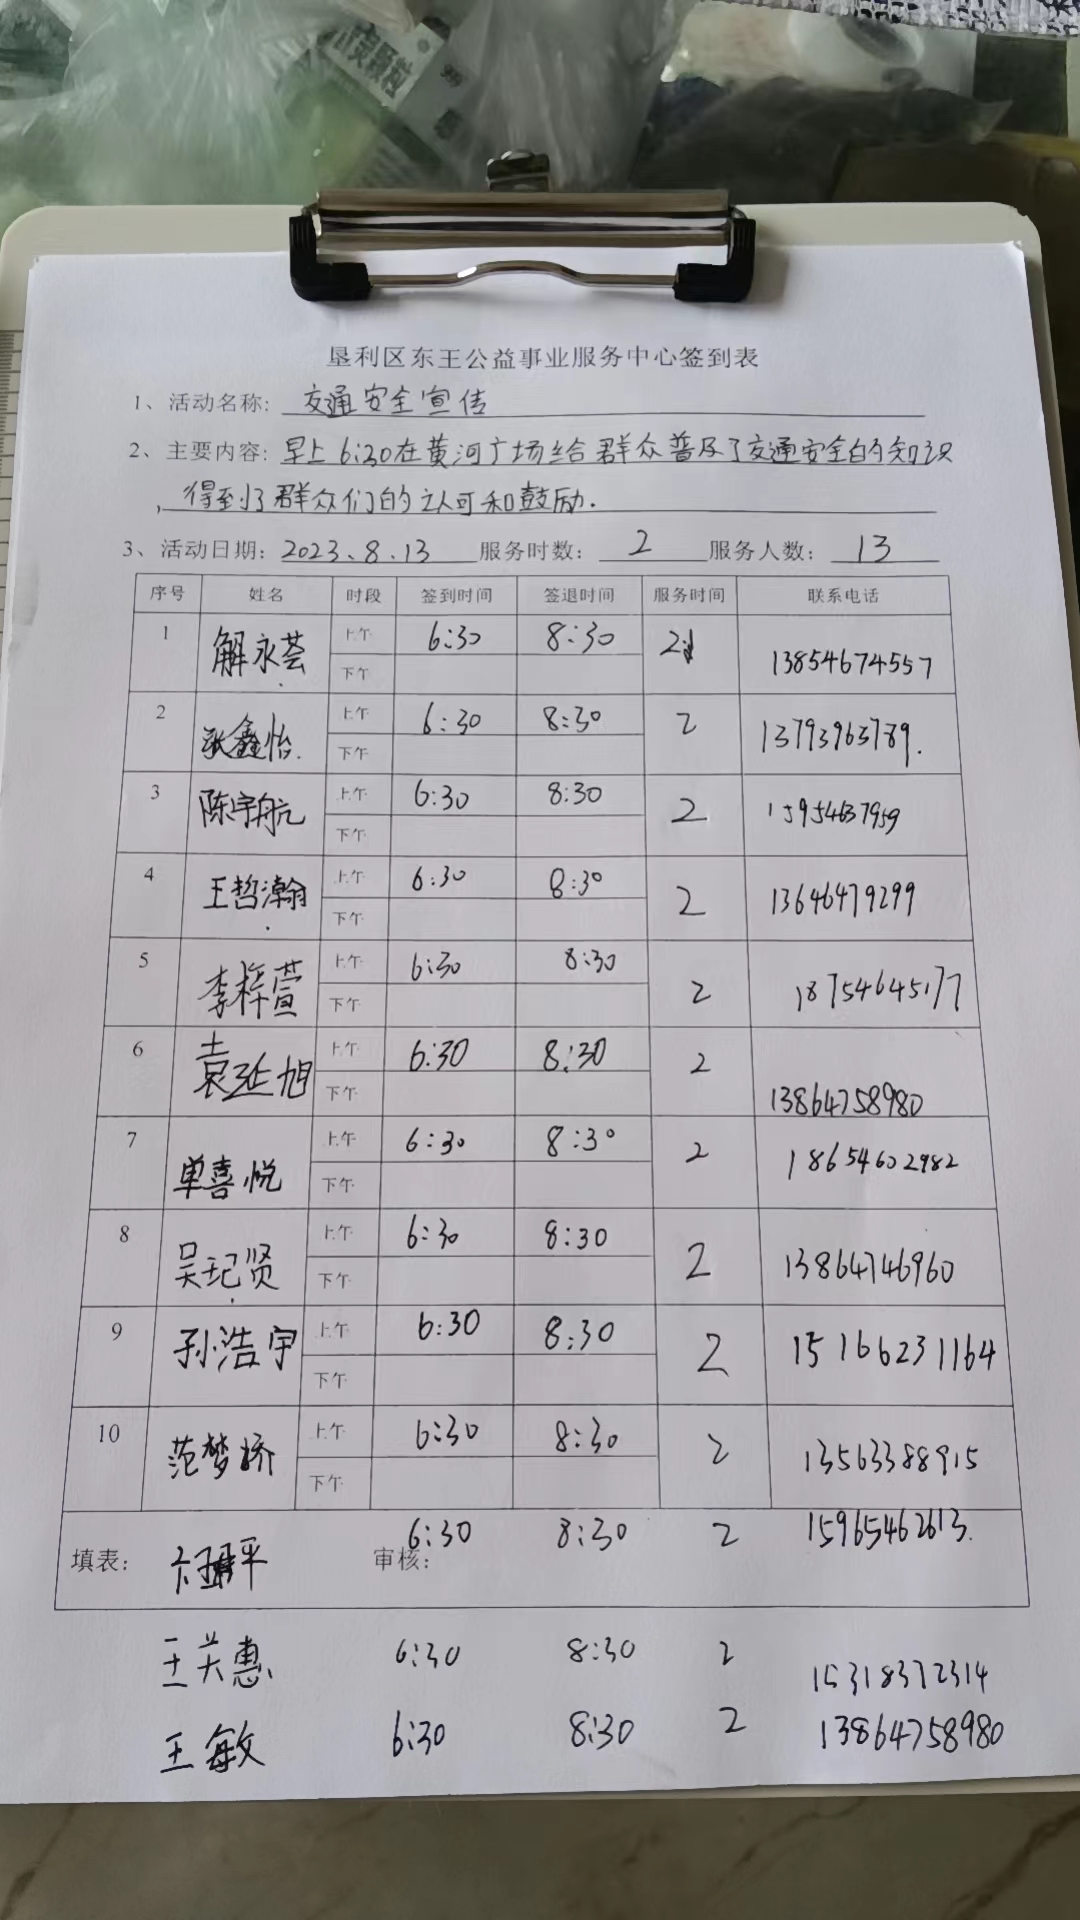 垦利区东王公益事业服务中心签到表
1、活动名称: 交通安全宣传
2、主要内容: 早上6:30在黄河广场给群众普及了交通安全的知识
,得到了群众们的认可和鼓励.
3、活动日期: 2023.8.13 服务时数: 2 服务人数: 13
序号 姓名 时段 签到时间 签退时间 服务时间 联系电话
1 解永荟 上午 6:30 8:30 2 13854674557
下午
2 张鑫怡. 上午 6:30 8:30 2 13793963789.
下午
3 陈宇航 上午 6:30 8:30 2 15954637959
下午
4 王哲瀚 上午 6:30 8:30 2 13646479299
下午
5 李梓萱 上午 6:30 8:30 2 18754645177
下午
6 袁延旭 上午 6:30 8:30 2 13864758980
下午
7 单喜悦 上午 6:30 8:30 2 18654602982
下午
8 吴玘贤 上午 6:30 8:30 2 13864746960
下午
9 孙浩宇 上午 6:30 8:30 2 15166231164
下午
10 范梦桥 上午 6:30 8:30 2 13563388915
下午
填表: 平 审核: 6:30 8:30 2 15965462613.
王关惠 6:30 8:30 2 15318372314
王敏 6:30 8:30 2 13864758980